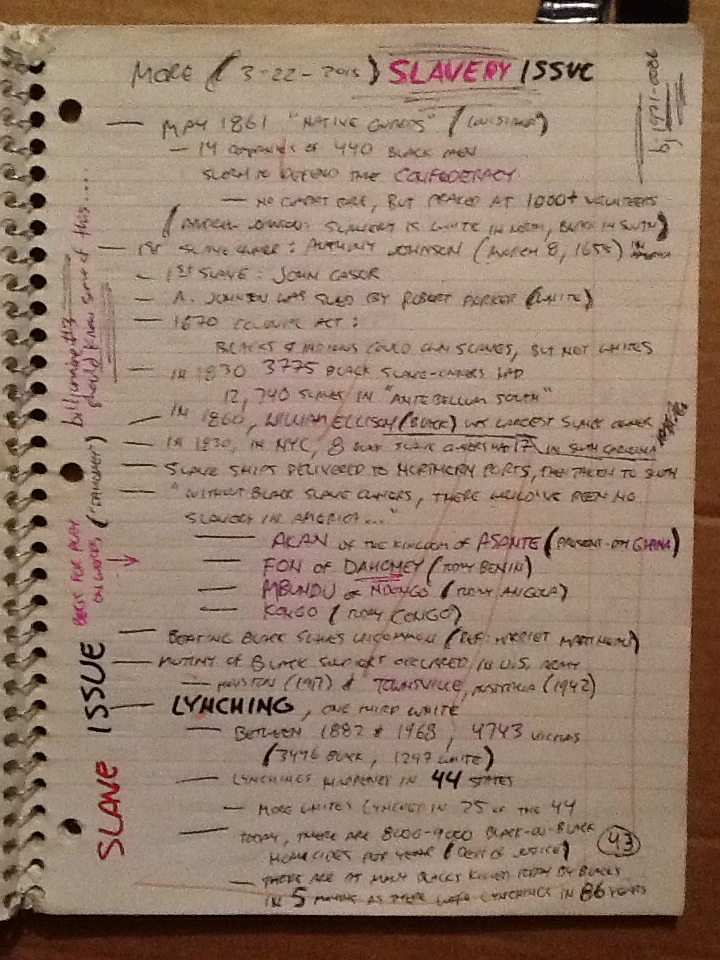 MORE (3-22-2015) SLAVERY ISSUE
— MAY 1861 "NATIVE GUARDS" (LOUISIANA)
— 14 COMPANIES OF 440 BLACK MEN
SWORN TO DEFEND THE CONFEDERACY
— NO COMBAT, BUT PEAKED AT 1000+ VOLUNTEERS
(ANDREW JOHNSON: SLAVERY IS WHITE IN NORTH, BLACK IN SOUTH)
— 1ST SLAVE OWNER: ANTHONY JOHNSON (MARCH 8, 1655) IN AMERICA
— 1ST SLAVE: JOHN CASOR
— A. JOHNSON WAS SUED BY ROBERT PARKER (WHITE)
— 1670 COLONIAL ACT:
BLACKS & INDIANS COULD OWN SLAVES, BUT NOT WHITES
— IN 1830 3775 BLACK SLAVE-OWNERS HAD
12,740 SLAVES IN "ANTEBELLUM SOUTH"
— IN 1860, WILLIAM ELLISON (BLACK) WAS LARGEST SLAVE OWNER
IN SOUTH CAROLINA
— IN 1830, IN NYC, 8 BLACK SLAVE OWNERS HAD 17
— SLAVE SHIPS DELIVERED TO NORTHERN PORTS, THEN TAKEN TO SOUTH
— "WITHOUT BLACK SLAVE OWNERS, THERE WOULD'VE BEEN NO
SLAVERY IN AMERICA..."
— AKAN OF THE KINGDOM OF ASANTE (PRESENT-DAY GHANA)
— FON OF DAHOMEY (TODAY BENIN)
— MBUNDU OF NDONGO (TODAY ANGOLA)
— KONGO (TODAY CONGO)
— BEATING BLACK SLAVES UNCOMMON (REF: HARRIET MARTINEAU)
— MUTINY OF BLACK SOLDIERS OCCURRED IN U.S. ARMY
— HOUSTON (1917) & TOWNSVILLE, AUSTRALIA (1942)
— LYNCHING, ONE THIRD WHITE
— BETWEEN 1882 & 1968, 4743 VICTIMS
(3446 BLACK, 1297 WHITE)
— LYNCHINGS HAPPENED IN 44 STATES
— MORE WHITES LYNCHED IN 25 OF THE 44
— TODAY, THERE ARE 8000-9000 BLACK-ON-BLACK
HOMICIDES PER YEAR (DEPT OF JUSTICE)
— THERE ARE AS MANY BLACKS KILLED TODAY BY BLACKS
IN 5 MONTHS AS THERE WERE LYNCHINGS IN 86 YEARS
43
bj1971-0086
should know some of this....
BASIS FOR PLAY
ON WORDS ("DAHOMEY")
SLAVE ISSUE